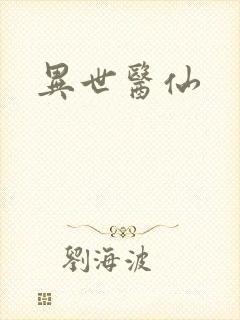 異世醫仙
劉海波